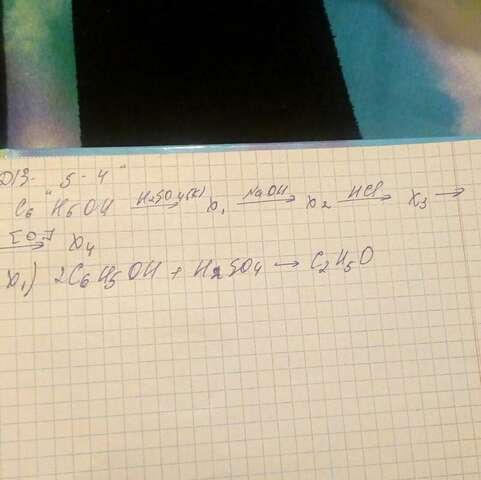 D/З- "5-4"
C₆H₅OH H₂SO₄(к)→ X₁ NaOH→ X₂ HCl→ X₃ →
[O]→ X₄
X₁) 2C₆H₅OH + H₂SO₄ → C₂H₅O